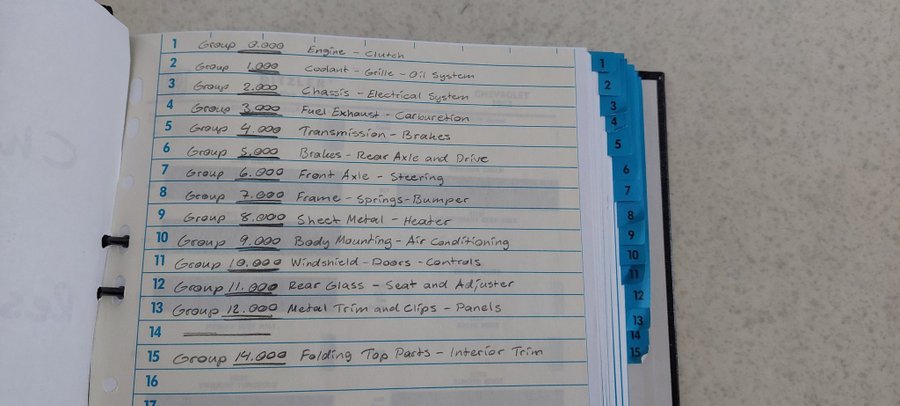 1 Group 0.000 Engine - Clutch
2 Group 1.000 Coolant - Grille - Oil System
3 Group 2.000 Chassis - Electrical System
4 Group 3.000 Fuel Exhaust - Carburetion
5 Group 4.000 Transmission - Brakes
6 Group 5.000 Brakes - Rear Axle and Drive
7 Group 6.000 Front Axle - Steering
8 Group 7.000 Frame - Springs - Bumper
9 Group 8.000 Sheet Metal - Heater
10 Group 9.000 Body Mounting - Air Conditioning
11 Group 10.000 Windshield - Doors - Controls
12 Group 11.000 Rear Glass - Seat and Adjuster
13 Group 12.000 Metal Trim and Clips - Panels
14
15 Group 14.000 Folding Top Parts - Interior Trim
16
17
1
2
3
4
5
6
7
8
9
10
11
12
13
14
15